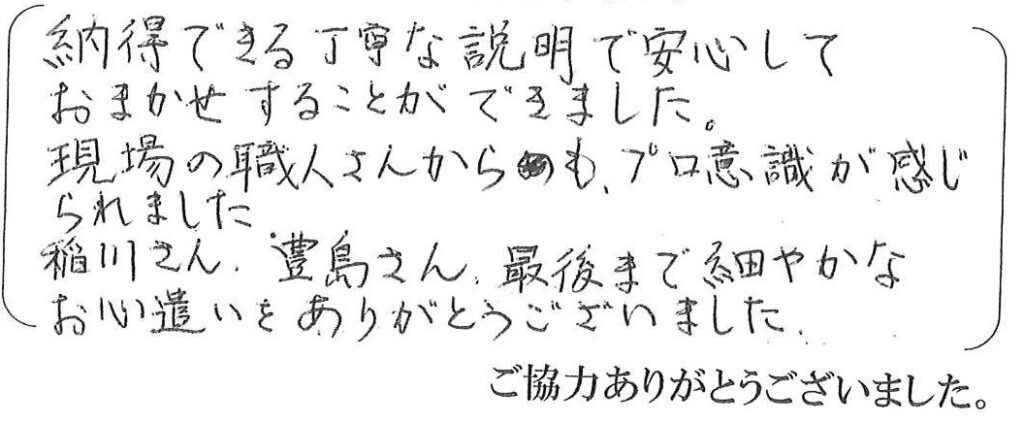 納得できる丁寧な説明で安心して
おまかせすることができました。
現場の職人さんからも、プロ意識が感じ
られました
稲川さん、豊島さん、最後まで細やかな
お心遣いをありがとうございました。
ご協力ありがとうございました。